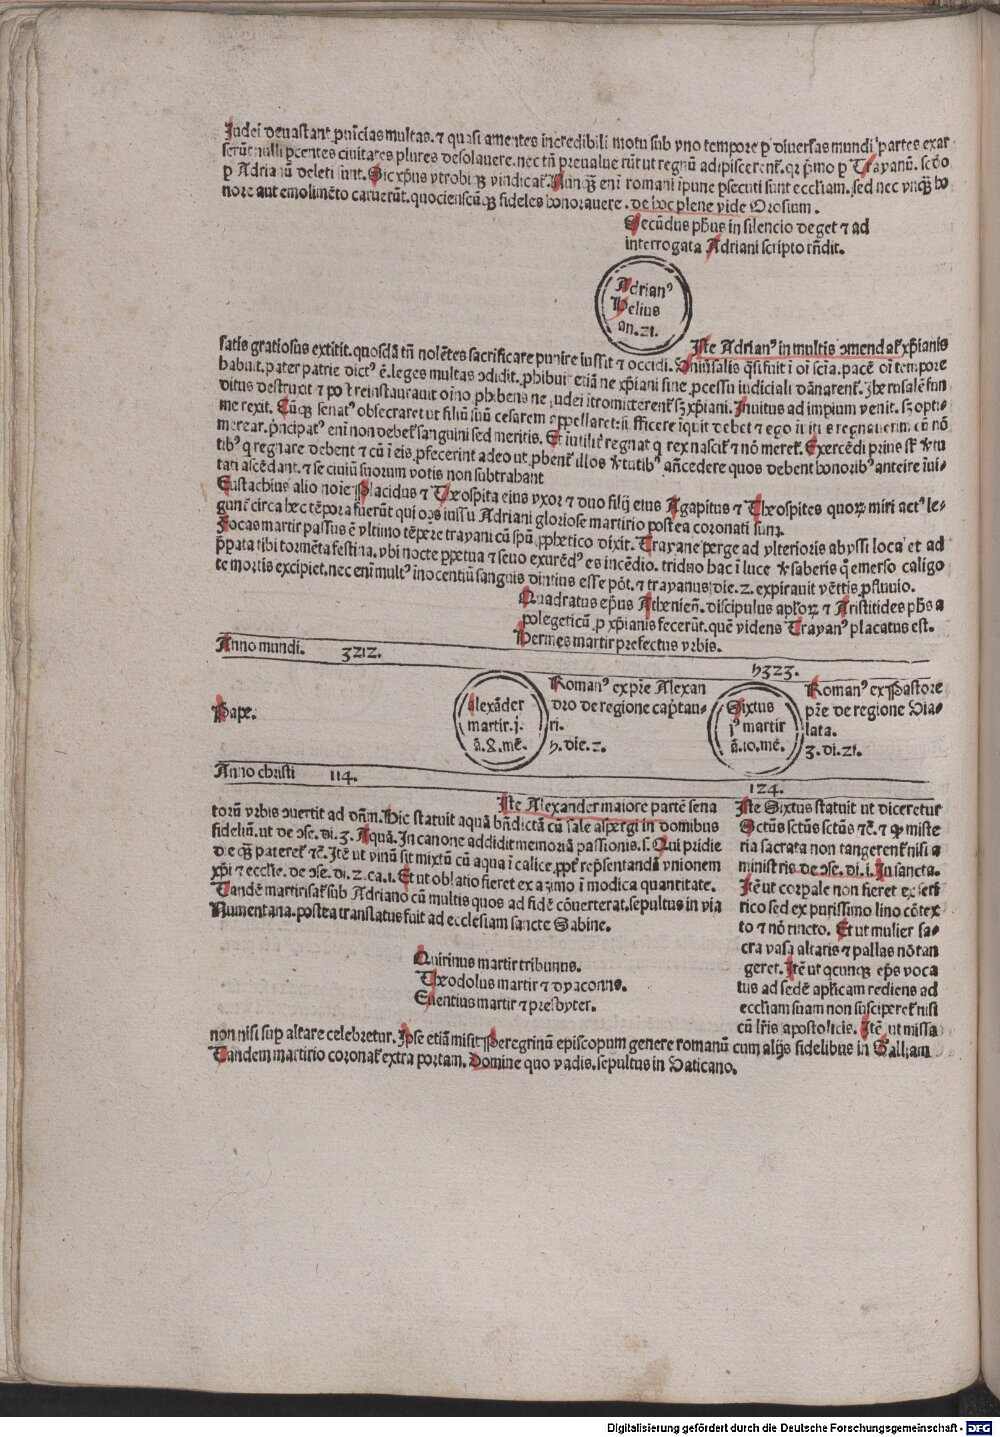 Iudei deuastant ꝓuĩcias multas. ⁊ quasi amentes incredibili motu sub vno tempore ꝑ diuersas mundi partes exar
serũt nulli ꝑcentes ciuitates plures desolauere. nec tñ preualuerũt ut regnũ adipiscerent̃. qꝛ p̃mo ꝑ Trayanũ. sc̃do
ꝑ Adrianũ deleti sunt. Sic xp̃us vtrobiqꝫ vindicat̃. Nunqꝫ eni romani ĩpune ꝓsecuti sunt eccl̃iam. sed nec vnqꝫ ho
nore aut emolimẽto caruerũt. quociensciũqꝫ fideles honorauere. de hoc plene vide Orosium.
Secũdus ph̃us in silencio deget ⁊ ad
interrogata Adriani scripto rñdit.
Adrianꝰ
Helius
an. 21.
Iste Adrianꝰ in multis ɔmendat̃ xp̃ianis
satis gratiosus extitit. quosdã tñ nolẽtes sacrificare punire iussit ⁊ occidi. Vniũsalis q̃si fuit ĩ oĩ sciã. pacẽ oĩ tempore
habuit. pater patrie dictꝰ ẽ. leges multas ɔdidit. ꝓhibuit etiã ne xp̃iani sine ꝓcessu iudiciali dãnarent̃. Jherusalẽ fun
ditus destruxit ⁊ post reinstaurauit oĩno ꝓhibens ne iudei ĩtromitterent̃ sꝫ xp̃iani. Inuitus ad impium venit. sꝫ opti-
me rexit. Cũqꝫ senatꝰ obsecraret ut filiũ suũ cesarem appellaret: sufficere ĩquit debet ⁊ ego ĩuitꝰ regnauerim cũ nõ
mererer. p̃ncipatꝰ eni non debet̃ sanguini sed meritis. Et ĩutilit̃ regnat q rex nascit̃ ⁊ nõ meret̃. Exercẽdi prius st̃ v̾tu
tibꝰ q regnare debent ⁊ cũ ĩ eis ꝓfecerint adeo ut ꝓbent̃ illos v̾tutibꝰ añcedere quos debent honoribꝰ anteire ĩui-
tati ascẽdant. ⁊ se ciuiũ suorum votis non subtrahant
Eustachius alio noĩe Placidus ⁊ Theospita eius vxor ⁊ duo filij eius Agapitus ⁊ Theospites quoꝝ miri actꝰ le-
gunt̃ circa hec tẽpora fuerũt qui oẽs iussu Adriani gloriose martirio postea coronati sunt.
Focas martir passus ẽ vltimo tẽpere trayani cũ spũ ꝓphetico dixit. Trayane perge ad vlterioris abyssi loca et ad
p̃parata tibi tormẽta festina. vbi nocte ꝑpetua ⁊ seuo exurẽdꝰ es incẽdio. triduo hac ĩ luce v̾saberis q̃ emerso caligo
te mortis excipiet. nec eni multꝰ inocentiũ sanguis diutius esse põt. ⁊ trayanus die. 2. expirauit vẽtris ꝓfluuio.
Quadratus ep̃us Athenieñ. discipulus apl̃oꝝ ⁊ Aristitides ph̃s a
polegeticũ ꝓ xp̃ianis fecerũt. quẽ videns Trayanꝰ placatus est.
Hermes martir prefectus vrbis.
Anno mundi. 3212. ꝩ323.
Pape.
alexãder
martir. j.
ã. 8. mẽ.
Romanꝰ ex p̃re Alexan
dro de regione cap̃tau-
ri.
ꝩ. die. 2.
Sixtus
jꝰ martir
ã. 10. mẽ.
Romanꝰ ex Pastore
p̃re de regione Via-
lata.
3. di. 21.
Anno christi 114. 124.
Iste Alexander maiore partẽ sena
torũ vrbis ɔuertit ad dñm. Hic statuit aquã bñdictã cũ sale aspergi in domibus
fideliũ. ut de ɔse. di. 3. Aquã. In canone addidit memoriã passionis. s. Qui pridie
die qꝫ pateret̃ ⁊c̃. Itẽ ut vinũ sit mixtũ cũ aqua ĩ calice. ꝓpt̃ rep̃sentandã vnionem
xp̃i ⁊ eccl̃ie. de ɔse. di. 2. ca. 1. Et ut oblatio fieret ex azimo ĩ modica quantitate.
Tandẽ martirisat̃ sub Adriano cũ multis quos ad fidẽ cõuerterat. sepultus in via
Numentana. postea translatus fuit ad ecclesiam sancte Sabine.
Quirinus martir tribunus.
Theodolus martir ⁊ dyaconus.
Euentius martir ⁊ presbyter.
Iste Sixtus statuit ut diceretur
Sctũs sctũs sctũs ⁊c̃. ⁊ ꝙ miste
ria sacrata non tangerent̃ nisi a
ministris de ɔse. di. i. In sancta.
Itẽ ut corpale non fieret ex seri
rico sed ex purissimo lino cõtex
to ⁊ nõ tincto. Et ut mulier sa-
cra vasa altaris ⁊ pallas nõ tan
geret. Itẽ ut qcunqꝫ ep̃s voca
tus ad sedẽ apl̃icam rediens ad
eccl̃iam suam non susciperet̃ nisi
cũ lr̃is apostolicis. Itẽ ut missa
non nisi suꝑ altare celebretur. Ipse etiã misit Peregrinũ episcopum genere romanũ cum alijs fidelibus in Galliam
Tandem martirio coronat̃ extra portam. Domine quo vadis. sepultus in Vaticano.
Digitalisierung gefördert durch die Deutsche Forschungsgemeinschaft - DFG